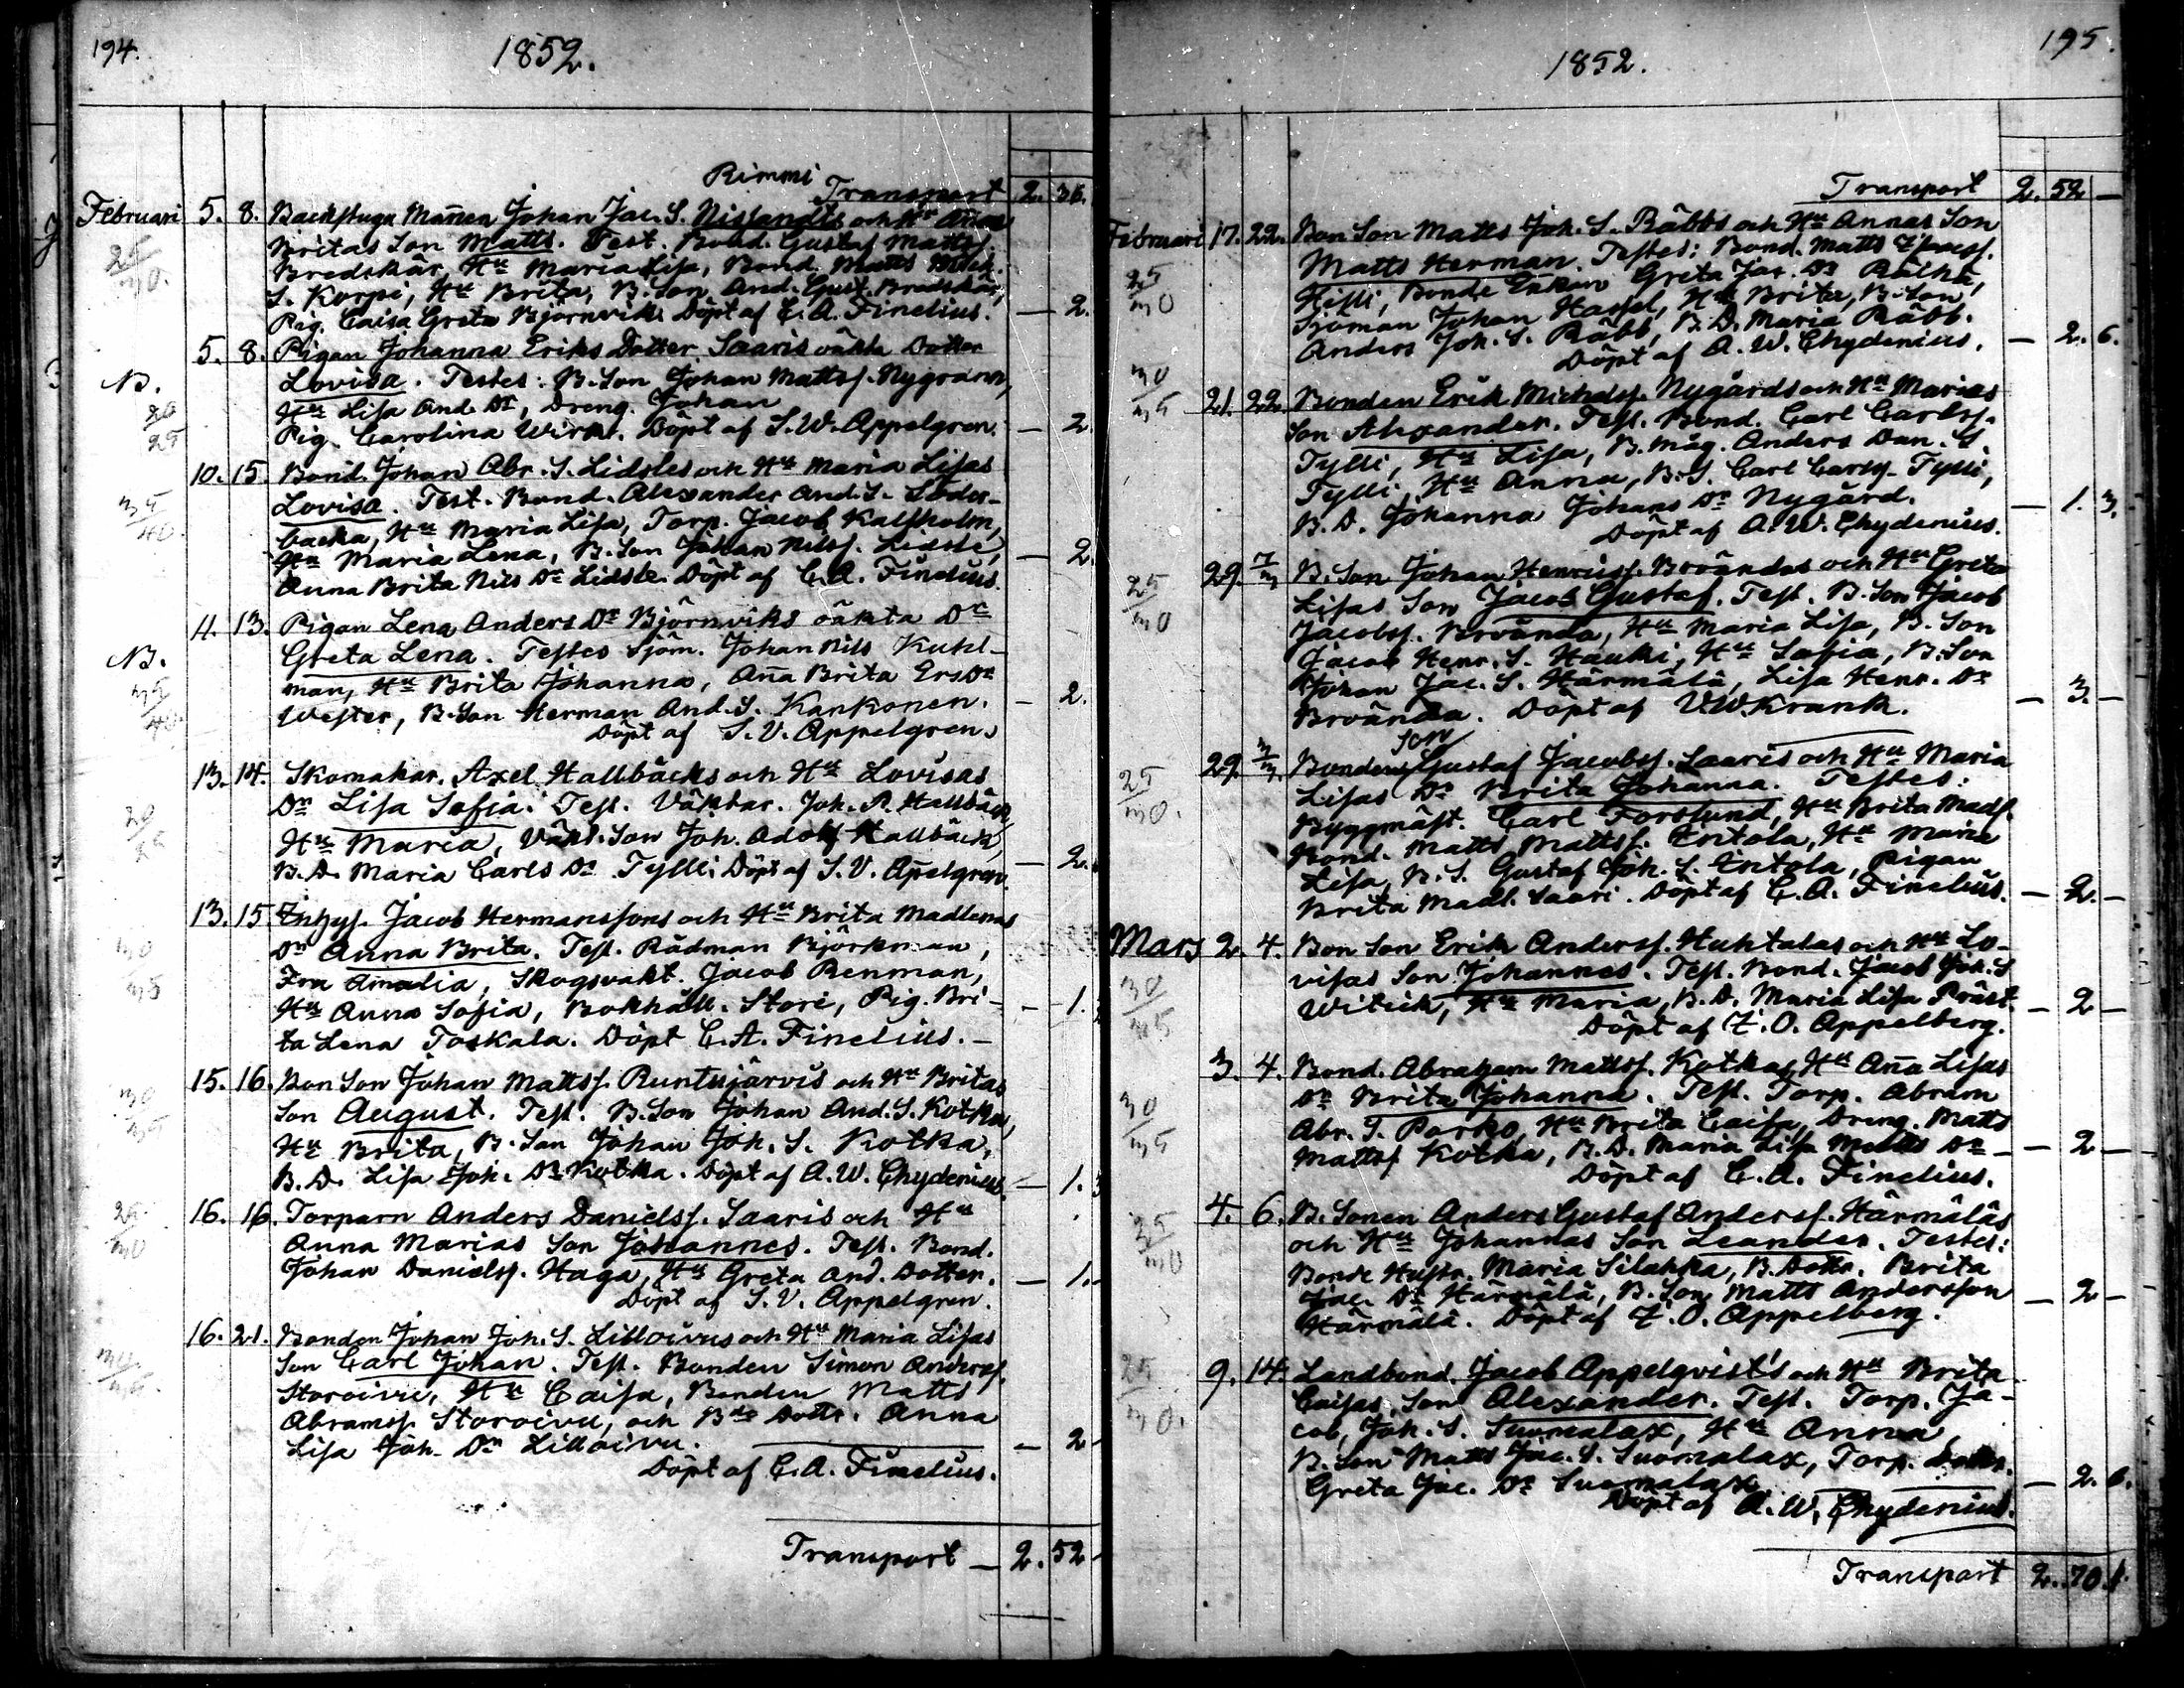 194.
1852.
Rimmi
Transport 2. 36.
Februari 5. 8. Backstugu Mañen Johan Jac. S. Nissandts och Hu Annas
Britas Son Matts. Test. Bond. Gustaf Mattss.
Bredskär, Hu Maria Lisa, Bond. Matts Mich.
S. Korpi, Hu Brita, B. Son And. Gust. Bredskär,
Pig. Caisa Greta Björnvik. Döpt af C. A. Finelius. — 2.
25/30.
5. 8. Pigan Johanna Eriks Dotter Saaris oäkta Dotter
Lovisa. Testes: B. Son Johan Mattss. Nygrann,
Hu Lisa And. Dr, Dreng. Johan
Pig. Carolina Wirk. Döpt af S. W. Appelgren. — 2.
N.
20/25
10. 15. Bond. Johan Abr. S. Lidstes och Hu Maria Lisas
Lovisa. Test. Bond. Alexander And. S. Söder-
backa, Hu Maria Lisa, Torp. Jacob Kalfholm,
Hu Maria Lena, B. Son Johan Nilss. Lidste,
Anna Brita Nils Dr Lidste. Döpt af C. A. Finelius. — 2.
35/40.
11. 13. Pigan Lena Anders Dr Björnviks oäkta Dr
Greta Lena. Testes Sjöm. Johan Nils Kuhl-
man, Hu Brita Johanna, Aña Brita Ers Dr
Wester, B. Son Herman And. S. Karkonen. — 2.
Döpt af S. V. Appelgren.
N.
35/40.
13. 14. Skomakar. Axel Hallbäcks och Hu Lovisas
Dr Lisa Sofia. Test. Väktar. Joh. A. Hallbäck,
Hu Maria, Väkt. Son Joh. Adolf Hallbäck,
B. D. Maria Carls Dr Tylli. Döpt af S. V. Apelgren. — 2.
13. 15. Inhys. Jacob Hermanssons och Hu Brita Madlenas
Dr Anna Brita. Test. Rådman Björkman,
Fru Amalia, Skogsvakt. Jacob Renman,
Hu Anna Sofia, Bokhåll. Store, Pig. Bri- — 1.
ta Lena Toskala. Döpt C. A. Finelius. —
30/35
15. 16. Bon Son Johan Mattss. Runtujärvis och Hu Britas
Son August. Test. B. Son Johan And. S. Kotka,
Hu Brita, B. Son Johan Joh. S. Kotka,
B. D. Lisa Joh. Dr Kotka. Döpt af A. W. Chydenius. — 1. 3
30/35
16. 16. Torparn Anders Danielss. Saaris och Hu
Anna Marias Son Johannes. Test. Bond.
Johan Danielss. Haga, Hu Greta And. Dotter. — 1.
Döpt af S. V. Appelgren.
25/30
16. 21. Bonden Johan Joh. S. Lilloivus och Hu Maria Lisas
Son Carl Johan. Test. Bonden Simon Anderss.
Storoivu, Hu Caisa, Bonden Matts
Abramss. Storoivu, och Bde Dottr. Anna
Lisa Joh. Dr Lilloivu. — 2
Döpt af C. A. Finelius.
Transport — 2. 52
195.
1852.
Transport 2. 52 —
Februari 17. 22. Bon Son Matts Joh. S. Räbbs och Hu Annas Son
Matts Herman. Testes: Bond. Matts
Hilli, Bonde Enkan Greta Jac. Dr Räihä,
Sjöman Johan Hassel, Hu Brita, B. Son,
Anders Joh. S. Räbb, B. D. Maria Räbb.
Döpt af A. W. Chydenius. — 2. 6.
25/30
21. 22. Bonden Erik Michelss. Nygårds och Hu Marias
Son Alexander. Test. Bond. Carl Carlss.
Tylli, Hu Lisa, B. Måg. Anders Dan. S.
Tylli, Hu Anna, B. S. Carl Carlss. Tylli,
B. D. Johanna Johans Dr Nygård. — 1. 3.
Döpt af A. W. Chydenius.
30/35
29. 7/3 B. Son Johan Henrikss. Broändas och Hu Greta
Lisas Son Jacob Gustaf. Test. B. Son Jacob
Jacobss. Broända, Hu Maria Lisa, B. Son
Jacob Henr. S. Hauki, Hu Sofia, B. Son
Johan Jac. S. Härmälä, Lisa Henr. Dr
Broända. Döpt af V. W. Krank. — 3. —
25/30
29. Son
Bondens Gustaf Jacobss. Saaris och Hu Maria
Lisas Dr Brita Johanna. Testes:
Byggmäst. Carl Forslund, Hu Brita Madl.
Bond. Matts Mattss. Entola, Hu Maria
Lisa, B. S. Gustaf Joh. S. Entola, Pigan
Brita Madl. Saari. Döpt af C. A. Finelius. — 2. —
25/30.
Mars 2. 4. Bon Son Erik Anderss. Huhtalas och Hu Lo-
visas Son Johannes. Test. Bond. Jacob Joh. S
Witick, Hu Maria, B. D. Maria Lisa Präst. — 2 —
Döpt af E. O. Appelberg.
30/35
3. 4. Bond. Abraham Mattss. Kotkas, Hu Aña Lisas
Dr Brita Johanna. Test. Torp. Abram
Abr. S. Porko, Hu Brita Caisa, Dreng. Matts
Mattss Kotka, B. D. Maria Lisa Matts Dr — 2 —
Döpt af C. A. Finelius.
30/35
4. 6. B. Sonen Anders Gustaf Anderss. Härmäläs
och Hu Johannas Son Leander. Testes:
Bonde Hustr. Maria Silakka, B. Dottr. Brita
Jac. Dr Härmälä, B. Son Matts Andersson
Härmälä. Döpt af E. O. Appelberg. — 2 —
25/30
9. 14. Landbond. Jacob Appelqvist's och Hu Brita
Caisas, Son Alexander. Test. Torp. Ja-
cob, Joh. S. Suomalax, Hu Anna,
B. Son Matts Jac. S. Suomalax, Torp. Dottr.
Greta Jac. Dr Suomalax. — 2. 6.
Döpt af A. W. Chydenius.
25/30.
Transport 2. 70. 1.